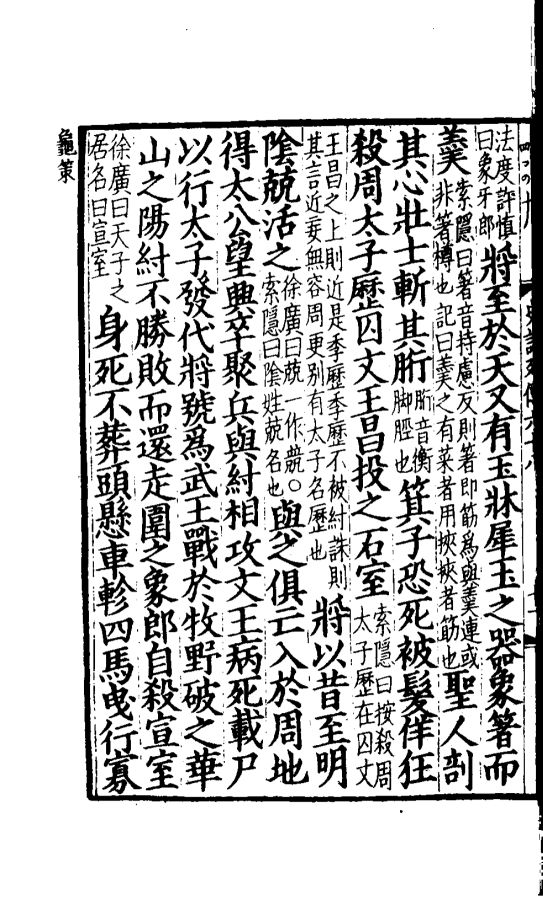 法度許慎曰象牙郎將至於天又有玉牀犀玉之器象箸而
羹索隱曰箸音持慮反則箸即筯爲與羹連或非箸樽也記曰羹之有菜者用梜梜者筯也聖人剖
其心壯士斬其胻胻音衡脚脛也箕子恐死被髮佯狂
殺周太子歷囚文王昌投之石室索隱曰按殺周太子歷在囚文
王昌之上則近是季歷季歷不被紂誅則其言近妄無容周更别有太子名歷也將以昔至明
陰兢活之徐廣曰兢一作競○索隱曰陰姓兢名也與之俱亡入於周地
得太公望興卒聚兵與紂相攻文王病死載尸
以行太子發代將號爲武王戰於牧野破之華
山之陽紂不勝敗而還走圍之象郎自殺宣室
徐廣曰天子之居名曰宣室身死不葬頭懸車軫四馬曳行寡
龜策